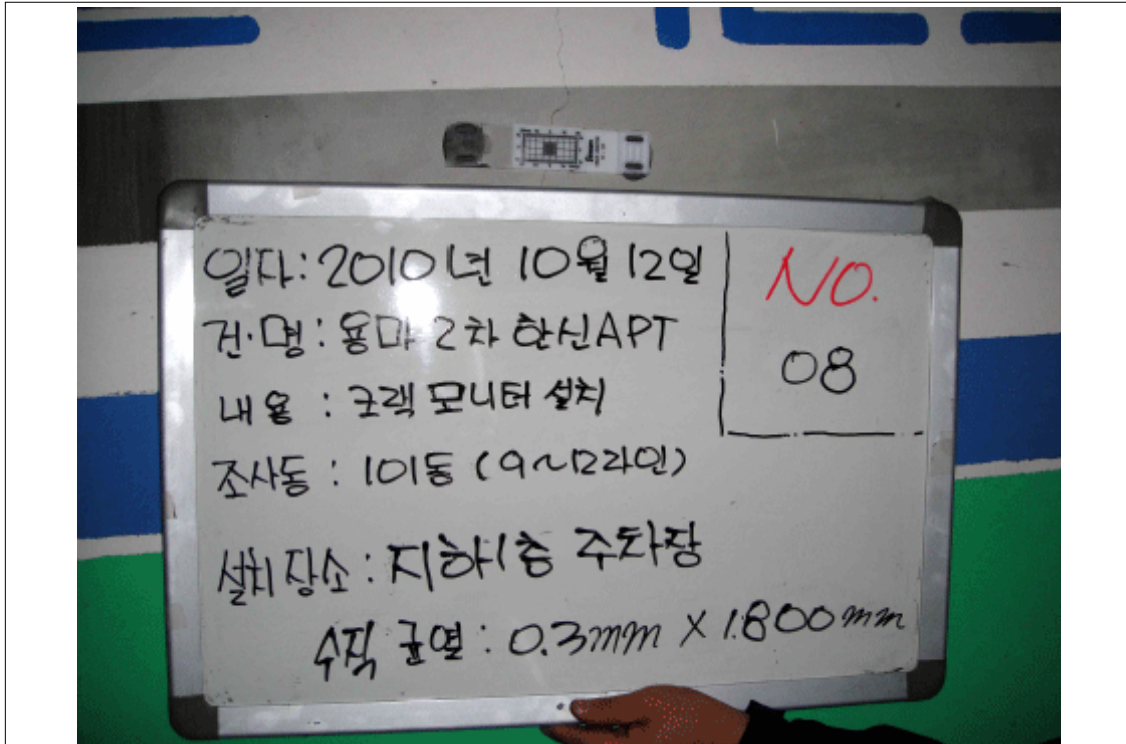 일자: 2010년 10월 12일
NO.
08
건·명: 용마 2차 한신APT
내용 : 크랙 모니터 설치
조사동 : 101동 (9~12라인)
설치장소 : 지하1층 주차장
수직 균열 : 0.3mm X 1.800mm